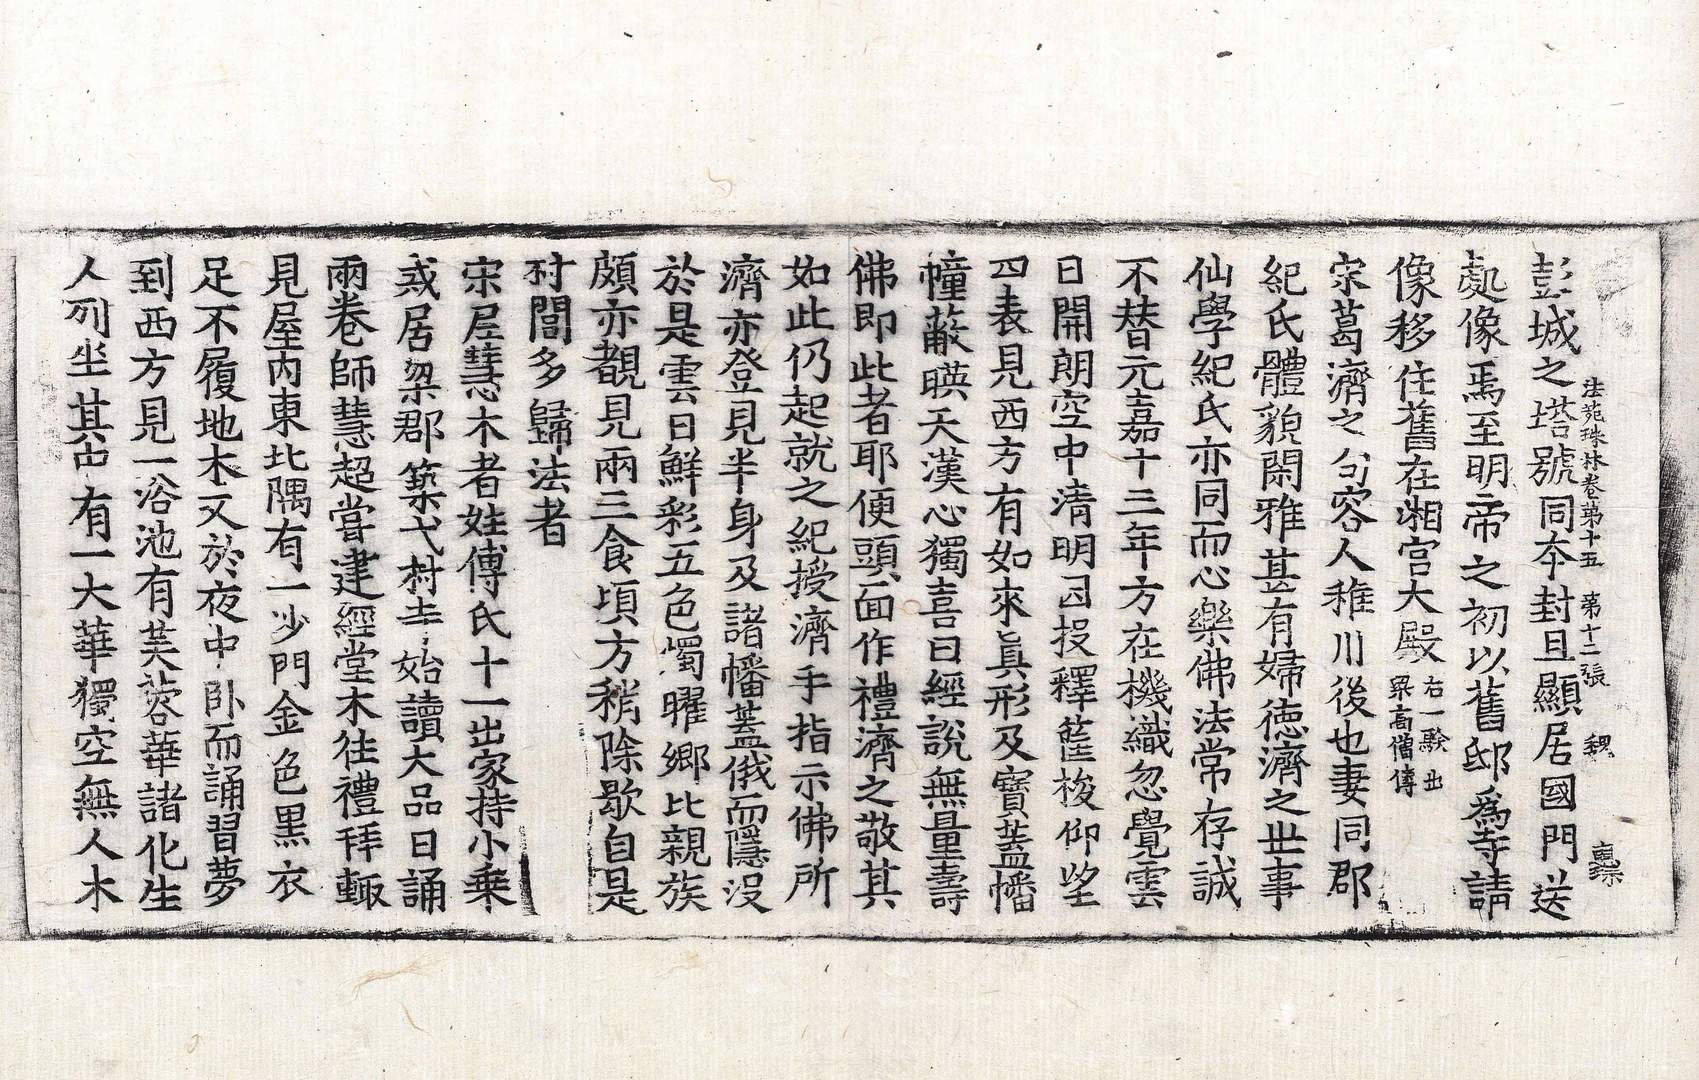 彭城之塔號同夲封且顯居國門送
法苑珠林卷第十五 第十二張 槻
處像焉至明帝之初以舊邸爲寺請
像移住舊在湘宫大殿右一驗出梁高僧傳
宋葛濟之句容人稚川後也妻同郡
紀氏體貌閑雅甚有婦徳濟之世事
仙學紀氏亦同而心樂佛法常存誠
不替元嘉十三年方在機織忽覺雲
日開朗空中清明因投釋筐梭仰望
四表見西方有如來眞形及寶蓋幡
幢蔽暎天漢心獨喜曰經説無量壽
佛即此者耶便頭面作禮濟之敬其
如此仍起就之紀授濟手指示佛所
濟亦登見半身及諸幡蓋俄而隱没
於是雲日鮮彩五色燭曜郷比親族
頗亦覩見兩三食頃方稍除歇自是
村閭多歸法者
宋尼慧木者姓傅氏十一出家持小乗
戒居梁郡築弋村寺始讀大品日誦
兩卷師慧超嘗建經堂木往禮拜輙
見屋内東北隅有一沙門金色黒衣
足不履地木又於夜中卧而誦習夢
到西方見一浴池有芙蓉華諸化生
人列坐其中有一大華獨空無人木